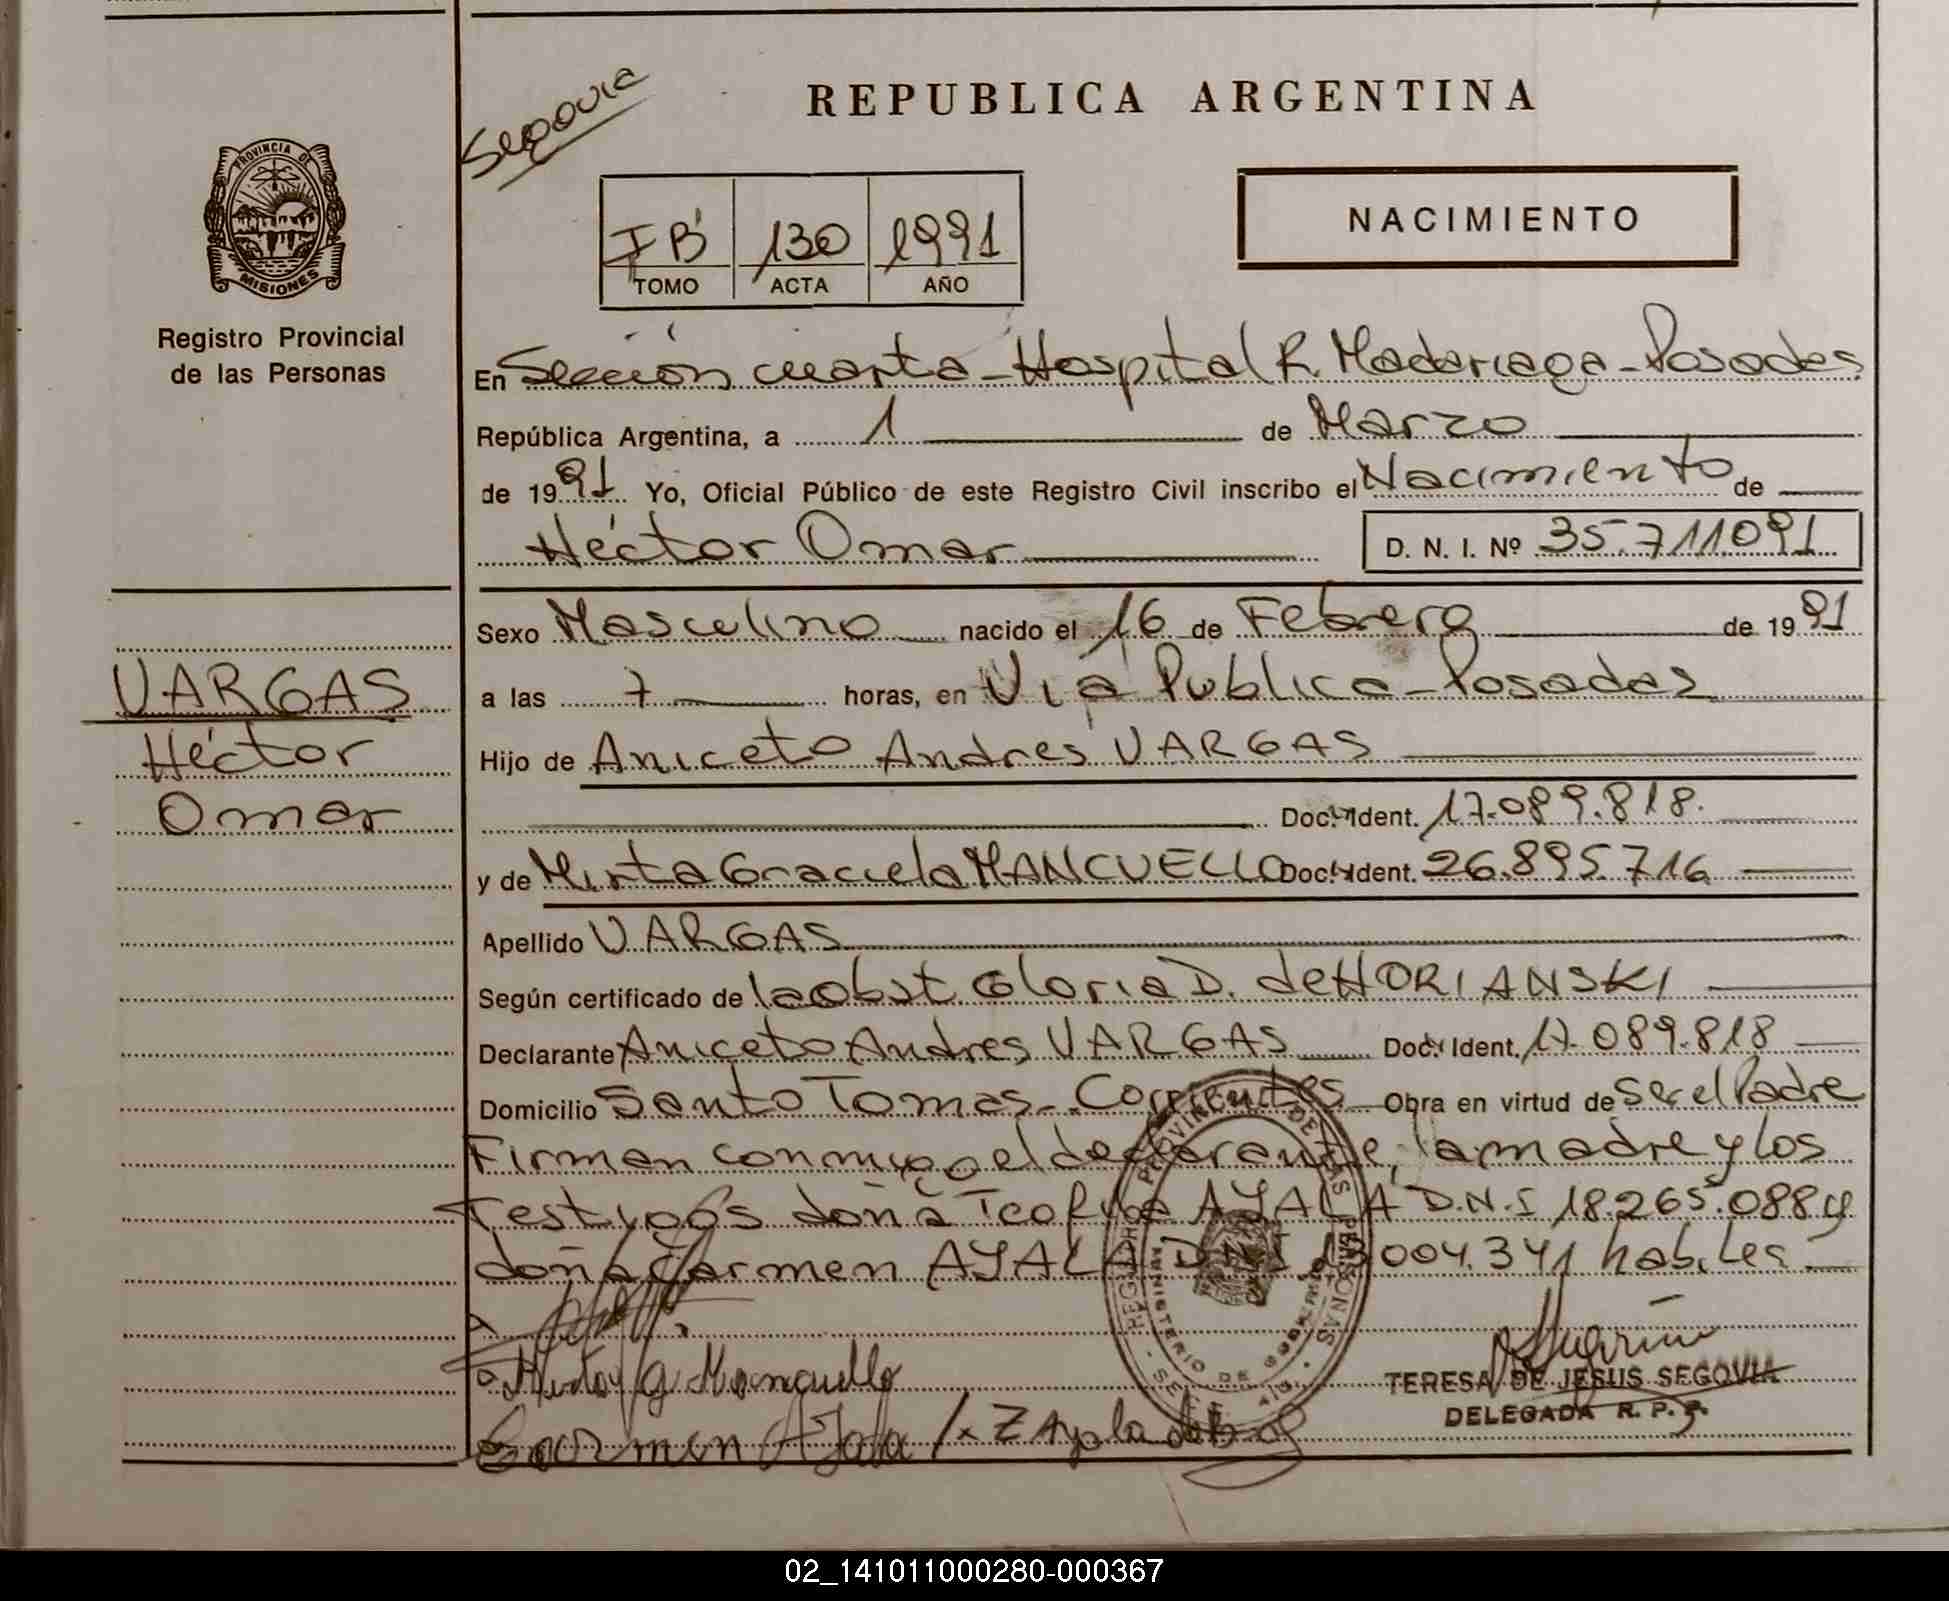 Segovia
REPUBLICA ARGENTINA
PROVINCIA DE
MISIONES
Registro Provincial
de las Personas
I B' 130 1991
TOMO ACTA AÑO
NACIMIENTO
En Sección cuarta - Hospital R. Madariaga - Posadas
República Argentina, a 1 de Marzo
de 1991 Yo, Oficial Público de este Registro Civil inscribo el Nacimiento de
Héctor Omar D. N. I. Nº 35.711.091
Sexo Masculino nacido el 16 de Febrero de 1991
a las 7 horas, en Vía Publica - Posadas
Hijo de Aniceto Andres VARGAS
Doc. Ident. 17.089.818.
y de Mirta Graciela MANCUELLO Doc. Ident. 26.895.716
Apellido VARGAS
Según certificado de la obst Gloria D. de HORIANSKI
Declarante Aniceto Andres VARGAS Doc. Ident. 17.089.818
Domicilio Santo Tomas - Corrientes Obra en virtud de Ser el Padre
Firman conmigo el declarante, la madre y los
Testigos doña Teofila AYALA D.N.I 18.265.088 y
doña Carmen AYALA D.N.I 13.004.341 habiles.
VARGAS
Héctor
Omar
Mirta G. Mancuello
Carmen Ayala
REGISTRO PROVINCIAL DE LAS PERSONAS
MINISTERIO DE GOBIERNO
TERESA DE JESUS SEGOVIA
DELEGADA R. P. P.
02_141011000280-000367